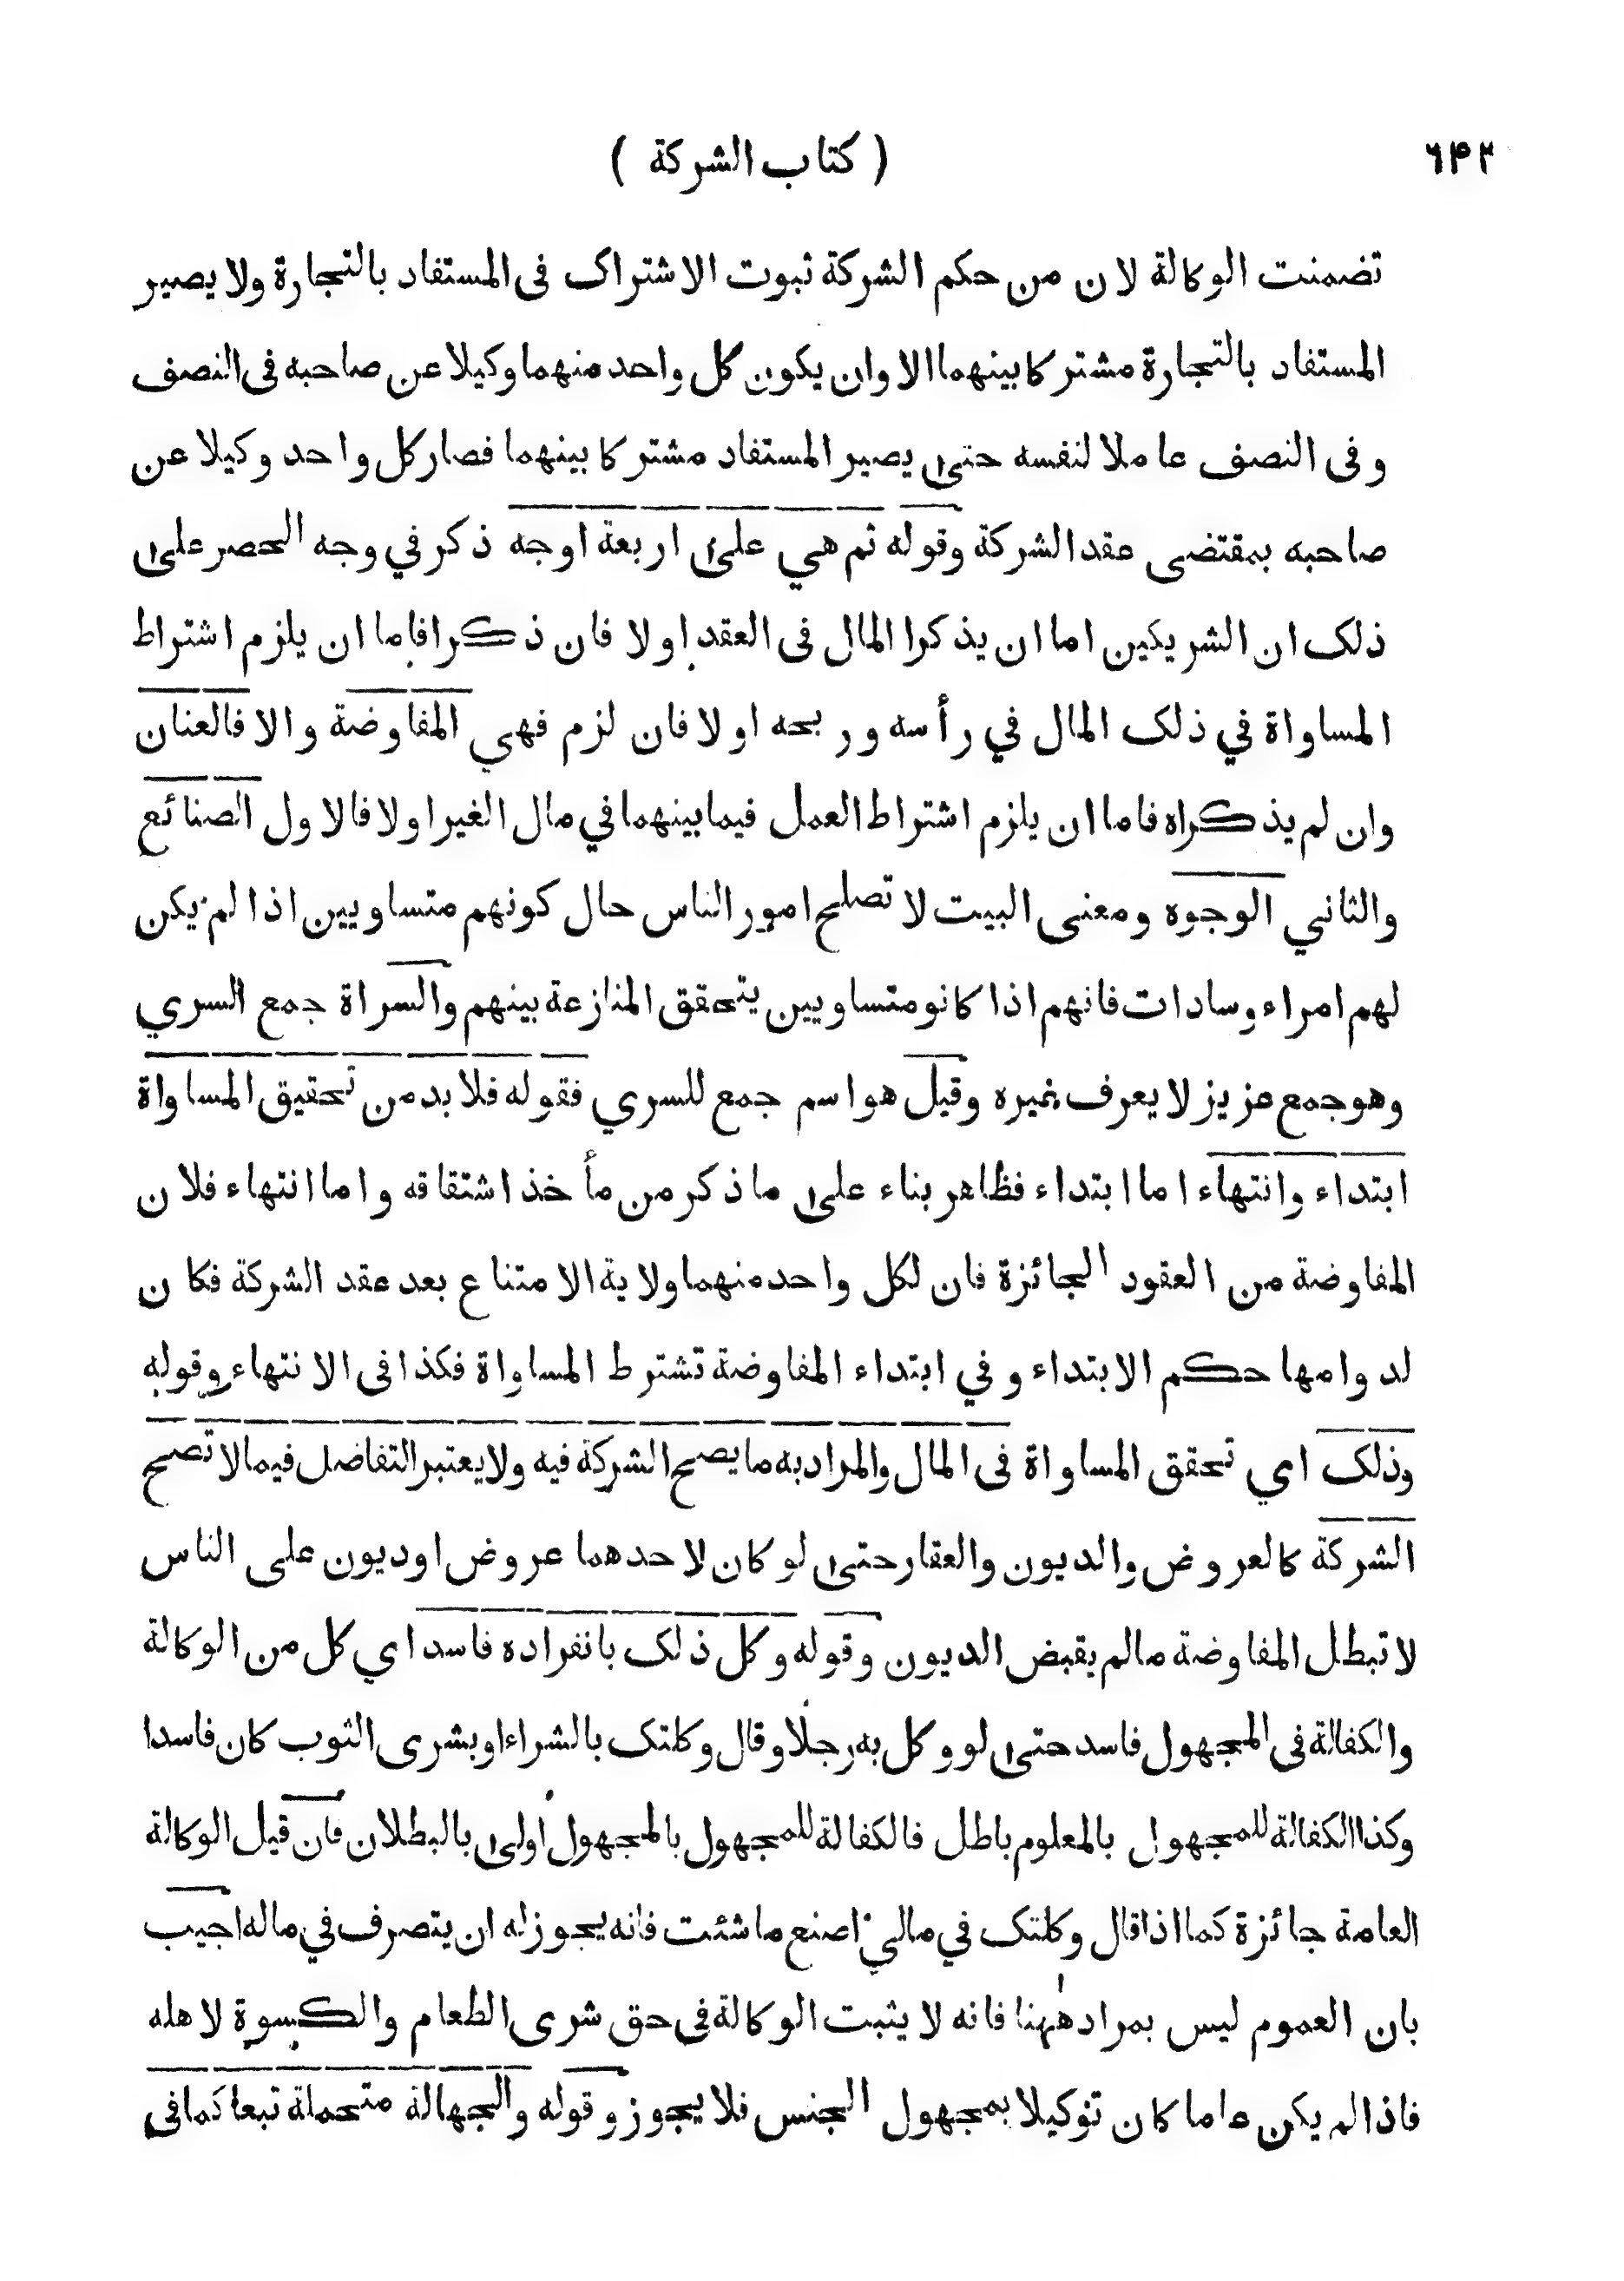 ۶۴۲
( كتاب الشركة )
تضمنت الوكالة لان من حكم الشركة ثبوت الاشتراك فى المستفاد بالتجارة ولا يصير
المستفاد بالتجارة مشتركا بينهما الا وان يكون كل واحد منهما وكيلا عن صاحبه فى النصف
وفى النصف عاملا لنفسه حتى يصير المستفاد مشتركا بينهما فصار كل واحد وكيلا عن
صاحبه بمقتضى عقد الشركة وقوله ثم هي على اربعة اوجه ذكر في وجه الحصر على
ذلك ان الشريكين اما ان يذكرا المال فى العقد او لا فان ذكرا فاما ان يلزم اشتراط
المساواة في ذلك المال في رأسه وربحه او لا فان لزم فهي المفاوضة والا فالعنان
وان لم يذكراه فاما ان يلزم اشتراط العمل فيما بينهما في مال الغير او لا فالاول الصنائع
والثاني الوجوه ومعنى البيت لا تصلح امور الناس حال كونهم متساويين اذا لم يكن
لهم امراء وسادات فانهم اذا كانو متساويين يتحقق المنازعة بينهم والسراة جمع السري
وهو جمع عزيز لا يعرف غيره وقيل هو اسم جمع للسري فقوله فلا بد من تحقيق المساواة
ابتداء وانتهاء اما ابتداء فظاهر بناء على ما ذكر من مأخذ اشتقاقه واما انتهاء فلان
المفاوضة من العقود الجائزة فان لكل واحد منهما ولاية الامتناع بعد عقد الشركة فكان
لدوامها حكم الابتداء وفي ابتداء المفاوضة تشترط المساواة فكذا فى الانتهاء وقوله
وذلك اي تحقق المساواة فى المال والمراد به ما يصح الشركة فيه ولا يعتبر التفاضل فيما لا تصح
الشركة كالعروض والديون والعقار حتى لو كان لاحدهما عروض او ديون على الناس
لا تبطل المفاوضة مالم يقبض الديون وقوله وكل ذلك بانفراده فاسد اي كل من الوكالة
والكفالة فى المجهول فاسد حتى لو وكل به رجلا وقال وكلتك بالشراء او بشرى الثوب كان فاسدا
وكذا الكفالة للمجهول بالمعلوم باطل فالكفالة للمجهول بالمجهول اولى بالبطلان فان قيل الوكالة
العامة جائزة كما اذا قال وكلتك في مالي اصنع ما شئت فانه يجوز له ان يتصرف في ماله اجيب
بان العموم ليس بمراد ههنا فانه لا يثبت الوكالة فى حق شرى الطعام والكسوة لاهله
فاذا لم يكن عاما كان توكيلا بمجهول الجنس فلا يجوز وقوله والجهالة متحملة تبعا كما فى